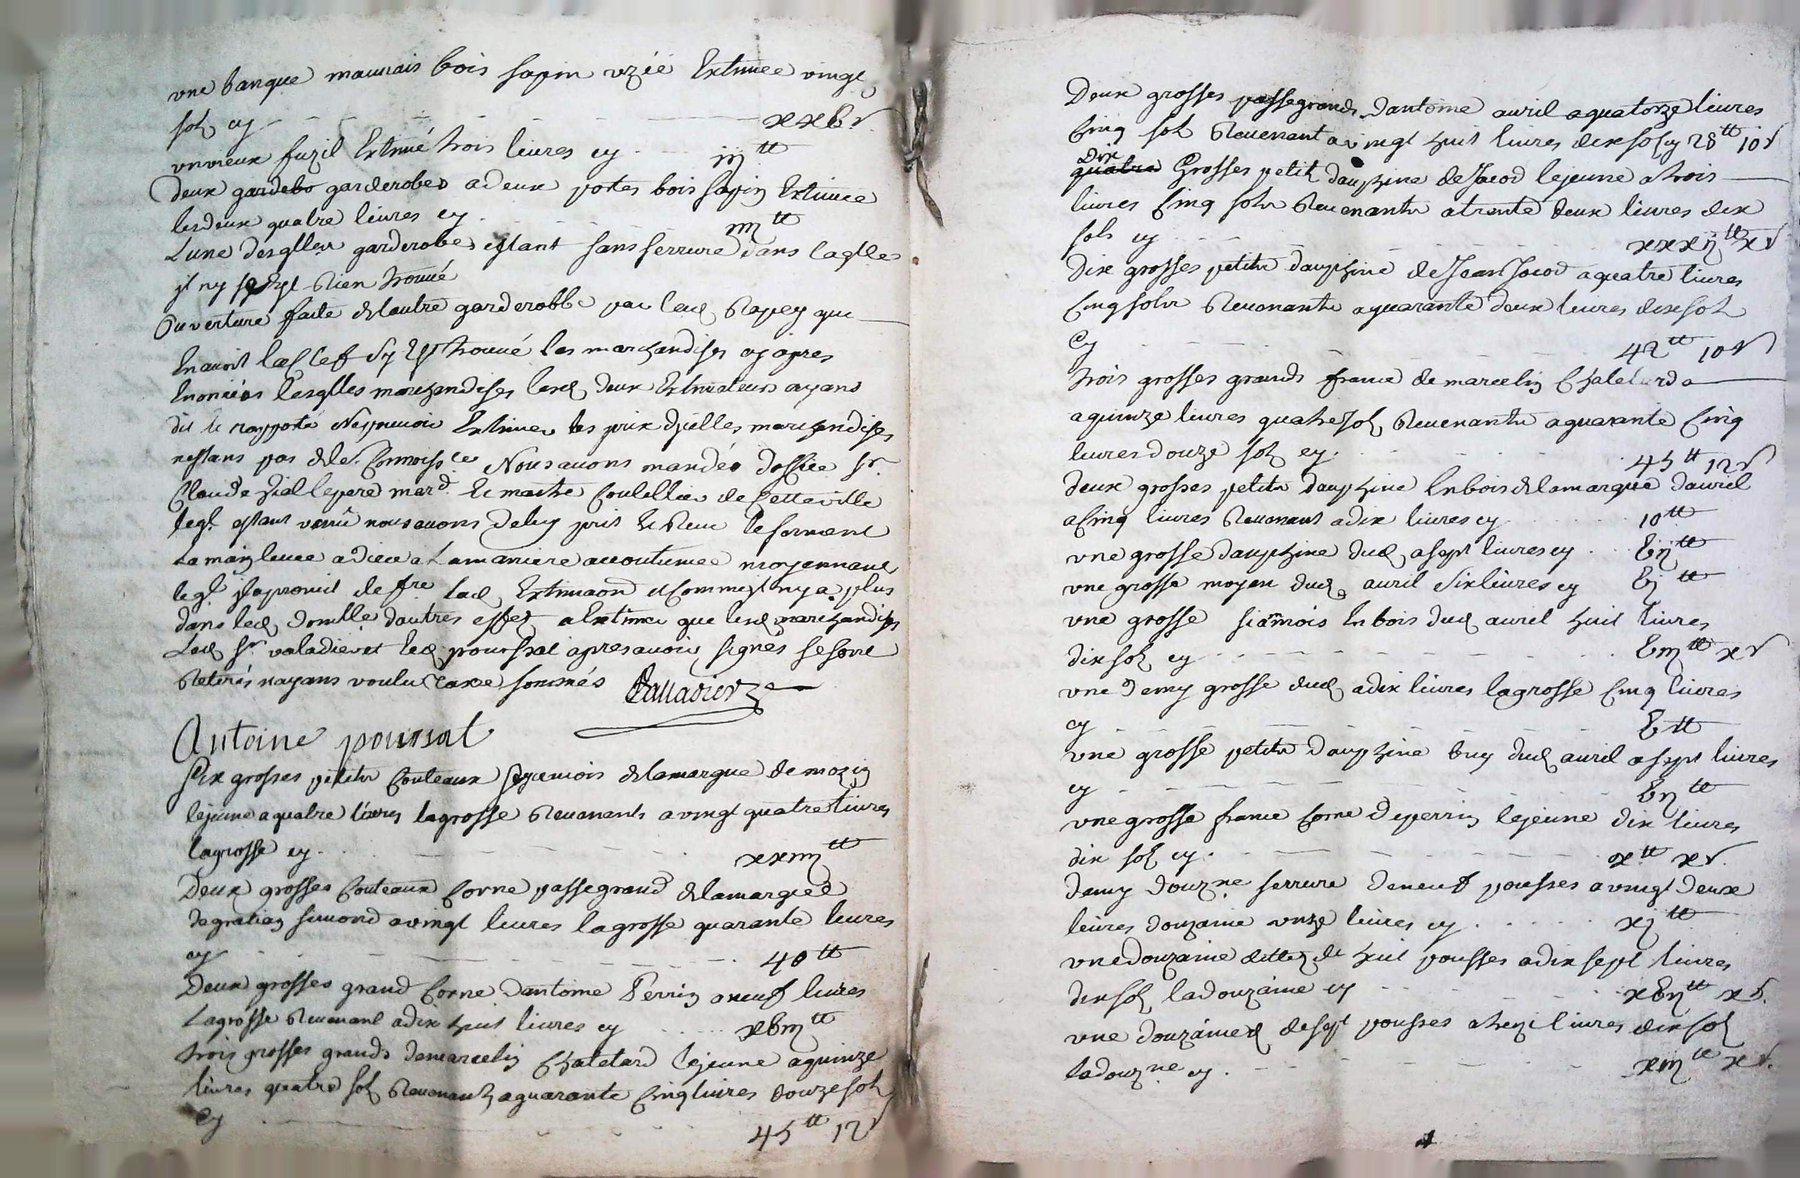 une banque mauvais bois sapin uzée Extimée vingt
sols cy xxb s
un vieux fuzil Extimé trois livres cy iij tt
deux gardebo garderobes a deux portes bois sapin Extimée
les deux quatre livres cy iiij tt
Lune desqlles garderobes estant sans serrure dans laqlle
il ny sest Rien trouvé
Ouverture faite de lautre garderobbe par led Rapey qui
En avoit la Clef sy est trouvé les marchandises cy apres
Enoncées lesqlles marchandises lesd deux Extimateurs ayans
dit et rapporté Ne pouvoir Extimer les prix djcelles marchandises
nestans pas de le Connoissce Nous avons mandés doffice sr
Claude Vial le pere mard et maitre Coutellier de Cette ville
leql estant venu nous avons de luy pris et Reçu le serment
La main levée a dieu a La maniere accoutumée moyennant
leql il a promis de fre lad Extimaon et Comme il ny a plus
dans led domlle dautres effets a Extimer que lesd marchandises
Led sr valadier et led poursat apres avoir signés se sont
Retirés nayans voulu taxe sommés Valladier
Antoine poursat
Six grosses petits Couteaux de la marque de
lejeune a quatre livres la grosse Revenants a vingt quatre livres
la grosse cy xxiiij tt
Deux grosses Couteaux Corne passegrand de la marque
de gratian simond a vingt livres la grosse quarante livres
cy 40 tt
Deux grosses grand Corne dantoine Perrin a neuf livres
La grosse Revenant a dix huit livres cy xbiij tt
trois grosses grands de marcelin Chatelard lejeune a quinze
livres quatre sols Revenants a quarante Cinq livres douze sols
Cy 45 tt 12 s
Deux grosses passegrands dantoine avril a quatorze livres
Cinq sols Revenant a vingt huit livres dix sols cy 28 tt 10 s
Dix
quatre Grosses petit dauphine de Jacod lejeune a trois
livres Cinq sols Revenants a trente deux livres dix
sols cy xxxij tt x s
Dix grosses petits dauphine de Jean Jacod a quatre livres
Cinq sols Revenants a quarante deux livres dix sols
Cy 42 tt 10 s
trois grosses grands france de marcelin Chatelard
a quinze livres quatre sols Revenants a quarante Cinq
livres douze sols cy 45 tt 12 s
deux grosses petits dauphine En bois de la marque davril
a Cinq livres Revenant a dix livres cy 10 tt
une grosse dauphine dud a sept livres cy bij tt
une grosse moyen dud avril six livres cy bj tt
une grosse siamois En bois dud avril huit livres
dix sols cy biij tt x s
une demy grosse dud a dix livres la grosse Cinq livres
cy b tt
une grosse petits dauphine buy dud avril a sept livres
cy bij tt
une grosse france Corne de perrin lejeune dix livres
dix sols cy x tt x s
demy douzne serrure de neuf pousses a vingt deux
livres douzaine unze livres cy xj tt
une douzaine dittes de huit pousses a dix sept livres
dix sols la douzaine cy xbij tt x s
une douzaine de sept pousses a treze livres dix sols
la douzne cy xiij tt x s